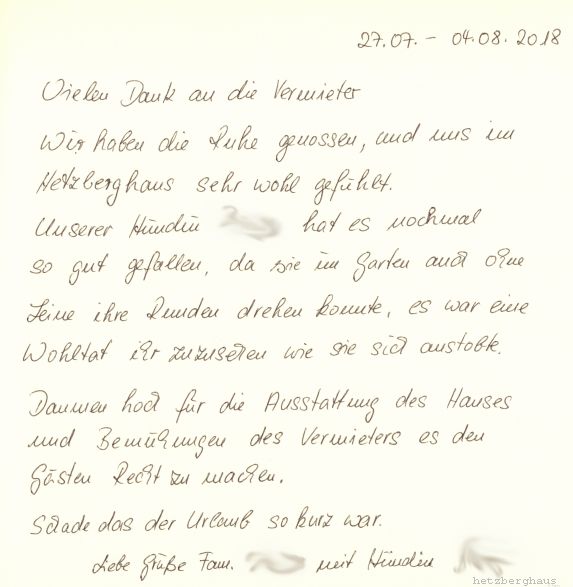 27.07. – 04.08.2018
Vielen Dank an die Vermieter
Wir haben die Ruhe genossen, und uns im
Hetzberghaus sehr wohl gefühlt.
Unserer Hündin hat es nochmal
so gut gefallen, da sie im Garten auch ohne
Leine ihre Runden drehen konnte, es war eine
Wohltat ihr zuzusehen wie sie sich austobte.
Daumen hoch für die Ausstattung des Hauses
und Bemühungen des Vermieters es den
Gästen Recht zu machen.
Schade das der Urlaub so kurz war.
Liebe Grüße Fam. mit Hündin
hetzberghaus